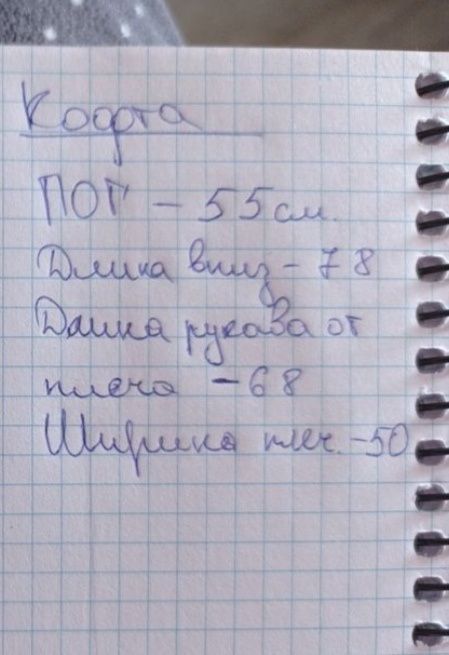 Кофта
ПОГ - 55 см.
Длина вниз - 78
Длина рукава от
плеча - 68
Ширина плеч. - 50